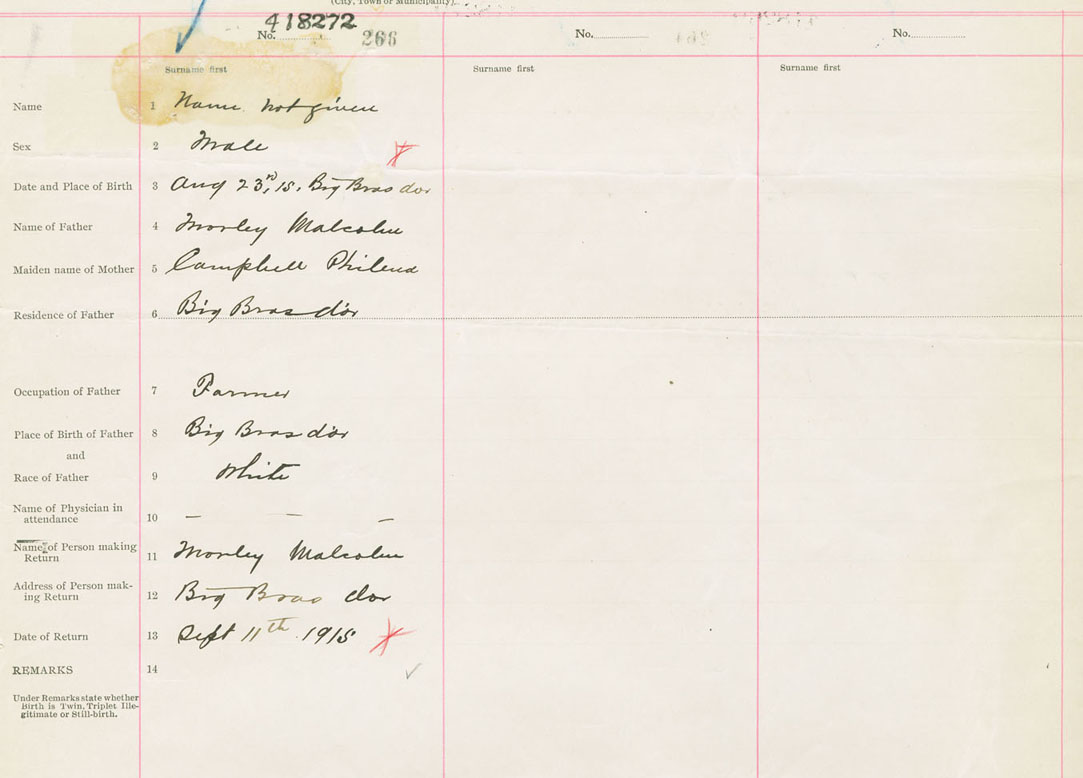 (City, Town or Municipality).
418272
No. 266 No. No.
Surname first Surname first Surname first
Name 1 Name not given
Sex 2 Male
Date and Place of Birth 3 Aug 23rd, 15, Big Bras dor
Name of Father 4 Morley Malcolm
Maiden name of Mother 5 Campbell Philena
Residence of Father 6 Big Bras d'or
Occupation of Father 7 Farmer
Place of Birth of Father 8 Big Bras d'or
and
Race of Father 9 White
Name of Physician in
attendance 10 — — —
Name of Person making
Return 11 Morley Malcolm
Address of Person mak-
ing Return 12 Big Bras dor
Date of Return 13 Sept 11th 1915
REMARKS 14
Under Remarks state whether
Birth is Twin, Triplet Ille-
gitimate or Still-birth.